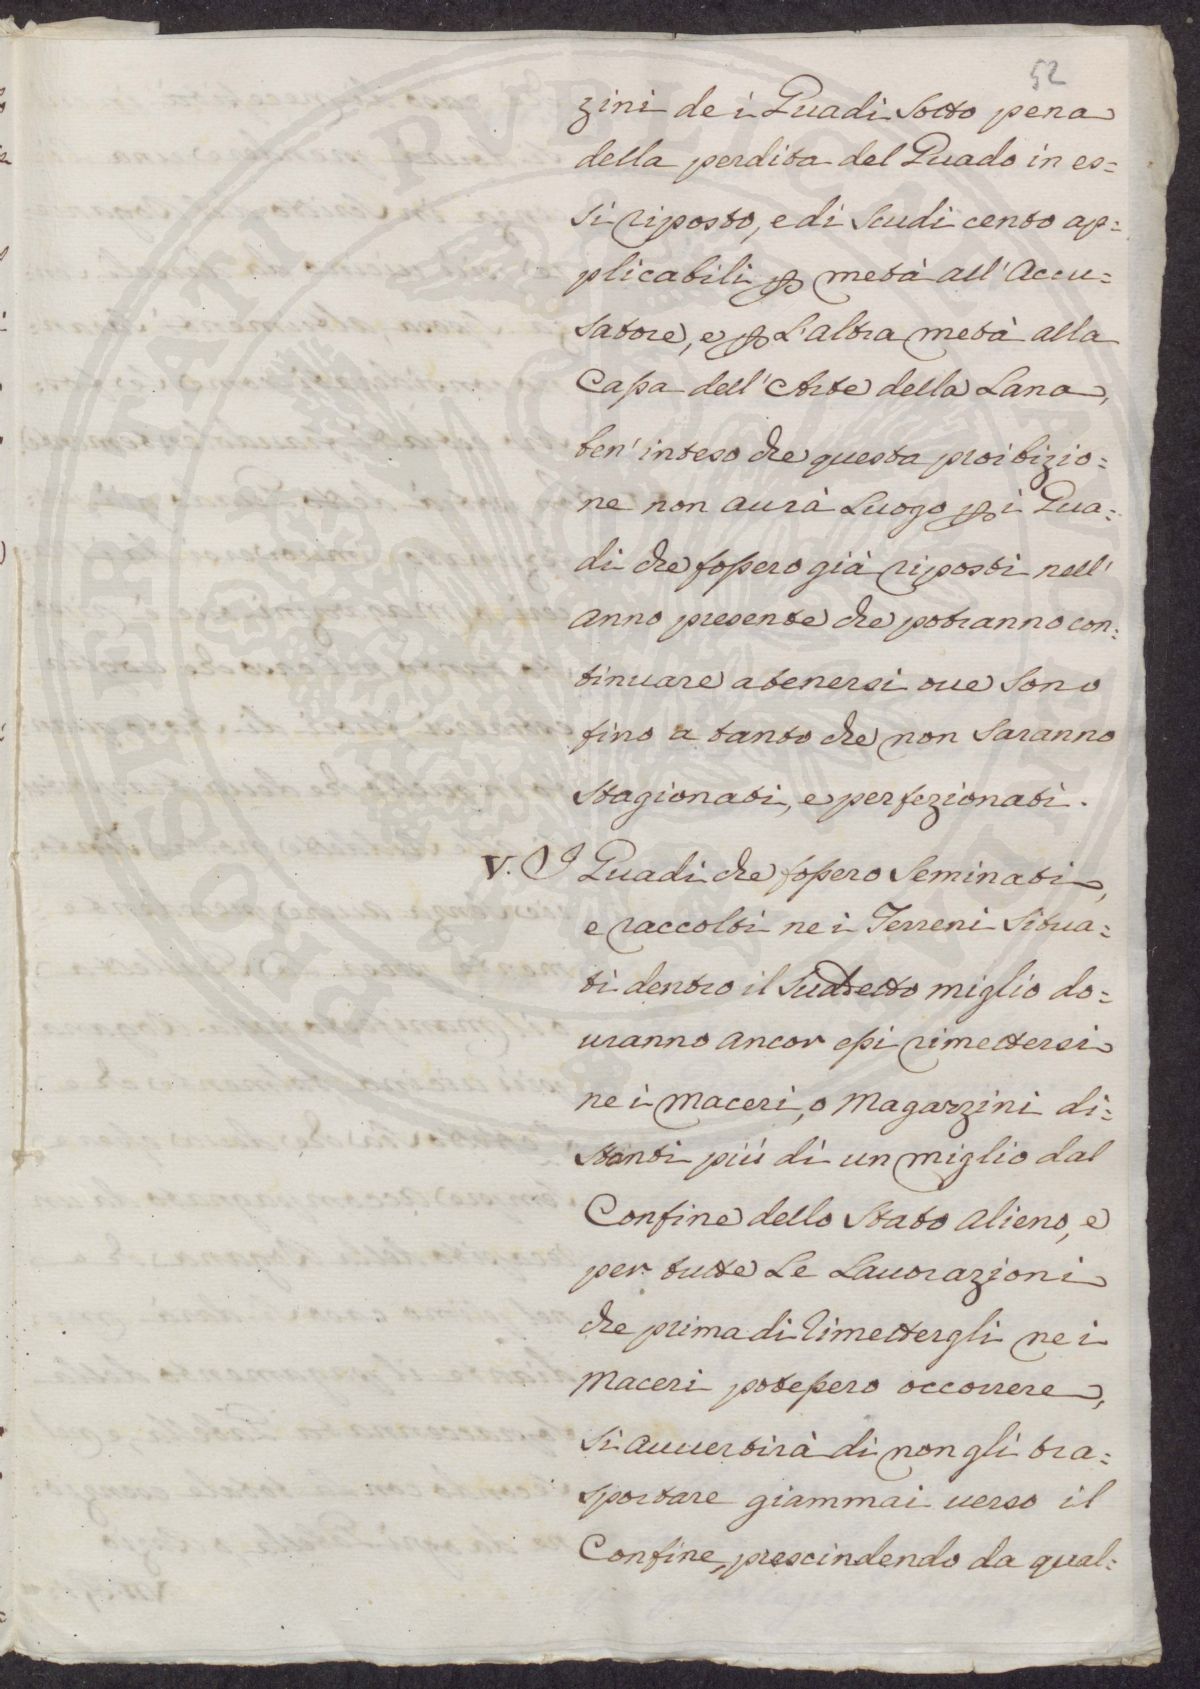 52
zini de i Guadi sotto pena
della perdita del Guado in es=
si riposto, e di scudi cento ap=
plicabili ꝑ metà all'Accu=
satore, e ꝑ l'altra metà alla
Cassa dell'Arte della Lana,
ben'inteso che questa proibizio=
ne non aurà Luogo ꝑ i Gua=
di che fossero già riposti nell'
anno presente che potranno con=
tinuare a tenersi oue sono
fino a tanto che non saranno
stagionati, e perfezionati.
V. I Guadi che fossero seminati,
e raccolti ne i Terreni situa=
ti dentro il sudetto miglio do=
uranno ancor essi rimettersi
ne i maceri, o Magazzini di=
stanti più di un miglio dal
Confine dello Stato alieno, e
per tutte Le Lauorazioni
che prima di rimettergli ne i
Maceri potessero occorrere,
si auuertirà di non gli tra=
sportare giammai uerso il
Confine, prescindendo da qual=